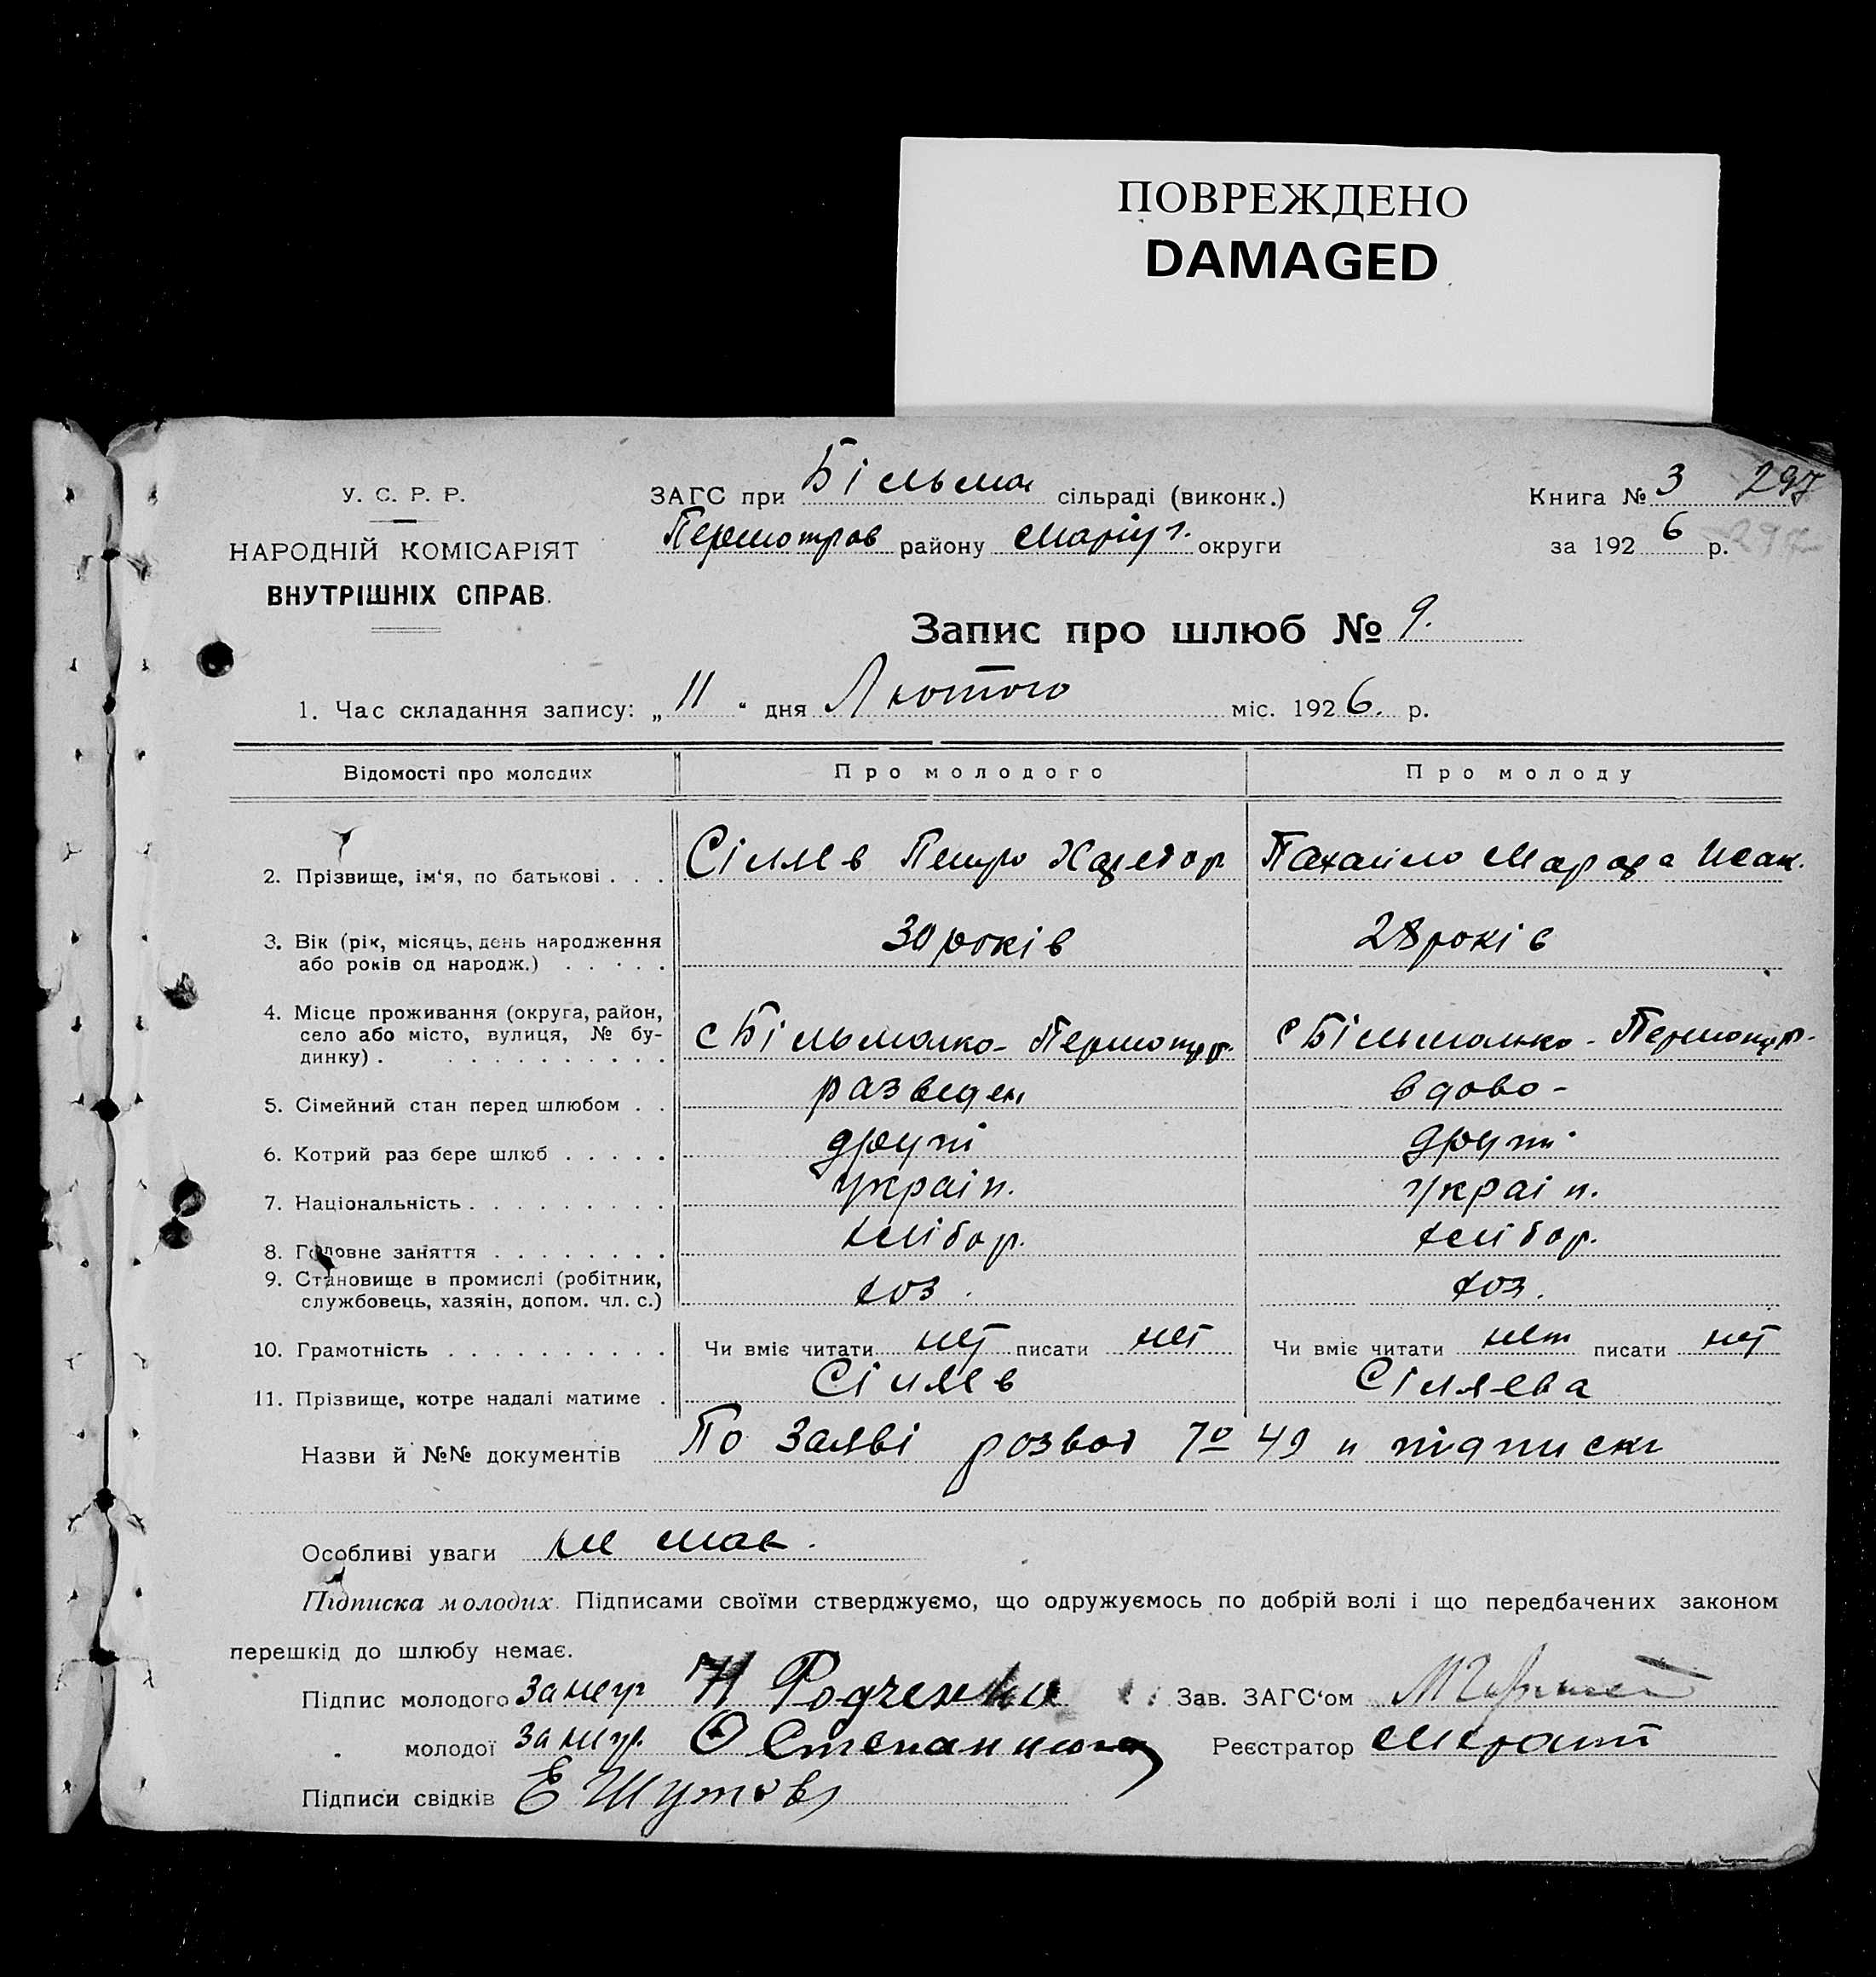 ПОВРЕЖДЕНО
DAMAGED
У. С. Р. Р.
НАРОДНІЙ КОМІСАРІЯТ
ВНУТРІШНІХ СПРАВ.
ЗАГС при Більма сільраді (виконк.)
району Маріуп. округи
Книга № 3 297
за 1926 р. 297
Запис про шлюб № 9.
1. Час складання запису: „11“ дня Лютого міс. 1926. р.
Відомості про молодих Про молодого Про молоду
2. Прізвище, ім‘я, по батькові . . . Сіляєв Петро Исак.
3. Вік (рік, місяць, день народження або років од народж.) . . . . . 30 років 28 років
4. Місце проживання (округа, район, село або місто, вулиця, № будинку) . . . . . . . . . . с Більманко- с Більманко-
5. Сімейний стан перед шлюбом . . разведен вдова-
6. Котрий раз бере шлюб . . . . . другі другі
7. Національність . . . . . . . . . україн. україн.
8. Головне заняття . . . . . . . . хлібор. хлібор.
9. Становище в промислі (робітник, службовець, хазяін, допом. чл. с.) хоз. хоз.
10. Грамотність . . . . . . . . . . Чи вміє читати нет писати нет Чи вміє читати нет писати нет
11. Прізвище, котре надалі матиме . Сіляєв Сіляєва
Назви й №№ документів По Заяві розвод 49 и підписки
Особливі уваги не має.
Підписка молодих. Підписами своїми стверджуємо, що одружуємось по добрій волі і що передбачених законом
перешкід до шлюбу немає.
Підпис молодого за негр Н Родченко Зав. ЗАГС‘ом
молодої за негр. Реєстратор
Підписи свідків Е Шутов